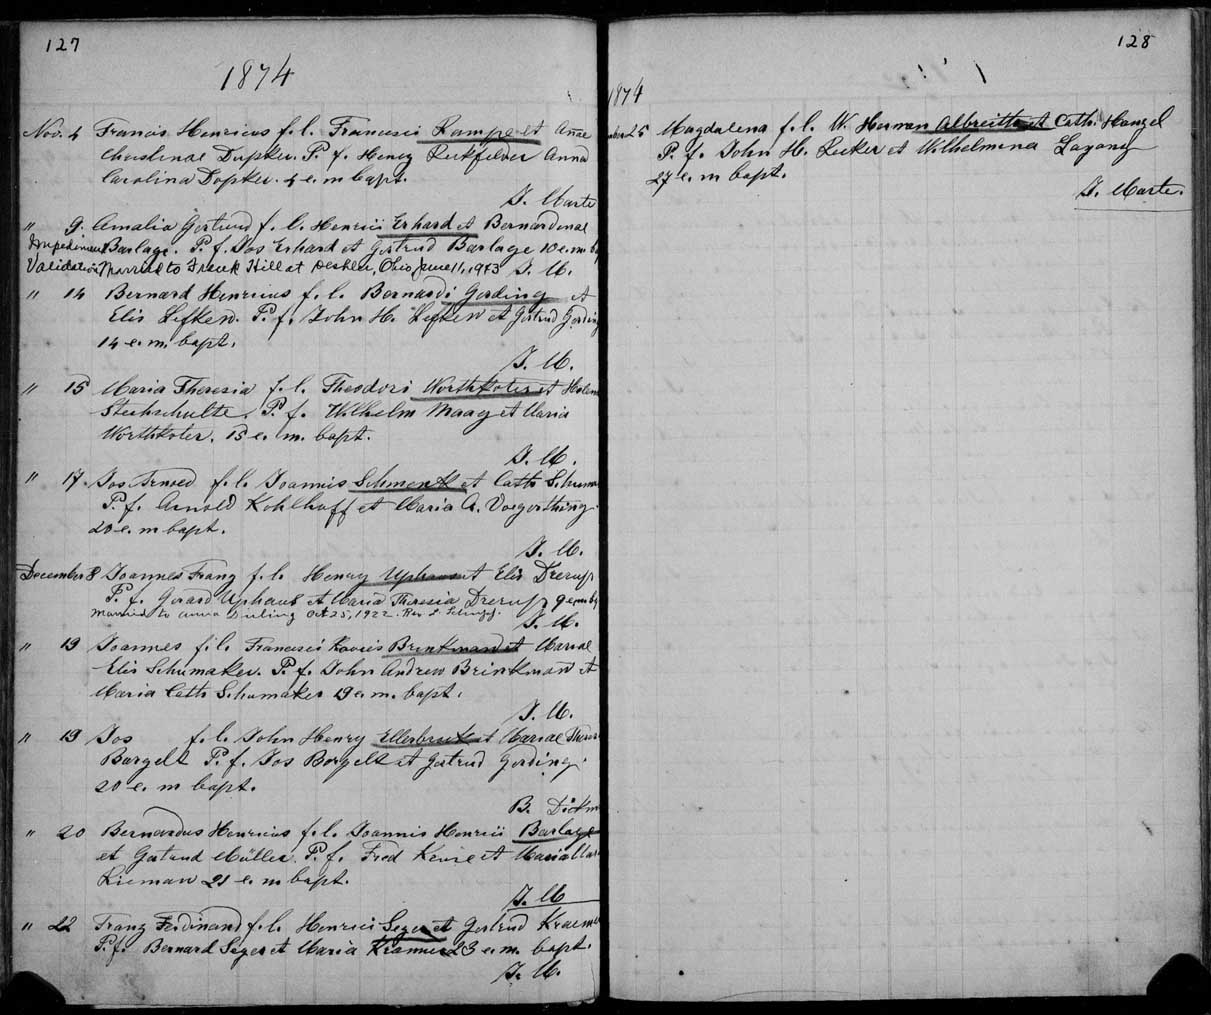 127
1874
Nov. 4 Francis Henricus f. l. Francisci Kampe et Annae
Christinae Dopker. P. f. Henry Reckfelder Anna
Carolina Dopker. 4 e. m bapt.
J. Marte
" 9. Amalia Gertrud f. l. Henrici Erhard et Bernardinae
Barlage. P. f. Jos Erhard et Gertrud Barlage 10 e. m
Validation Married to Frank Hill at Deshler, Ohio June 11, 1943 J. M.
" 14 Bernard Henricus f. l. Bernardi Gerding et
Elis Lefken. P. f. John H. Lefken et Gertrud Gerding
14 e. m. bapt.
J. M.
" 15 Maria Theresia f. l. Theodori Northkoter et
Stechschulte, P. f. Wilhelm Maag et Maria
Northkoter. 15 e. m. bapt.
J. M.
" 17. Jos Arnold f. l. Joannis Schmenk et Cath
P. f. Arnold Kohlhoff et Maria A.
20 e. m bapt.
J. M.
December 8 Joannes Franz f. l. Henry Uphaus et Elis Drerup
P. f. Gerard Uphaus et Maria Theresia Drerup 9 e. m
Married to Anna Duling Oct 25, 1922. Rev.
J. M.
" 19 Joannes f. l. Francisci Xaveri Brinkman et Mariae
Elis Schumaker. P. f. John Andrew Brinkman et
Maria Cath Schumaker 19 e. m. bapt.
J. M.
" 19 Jos f. l. John Henry Ellerbrock et Mariae
Borgelt P. f. Jos Borgelt et Gertrud Gerding.
20 e. m bapt.
B. Dickm
" 20 Bernardus Henricus f. l. Joannis Henrici Barlage
et Gertrud Müller. P. f. Fred et Maria
21 e. m bapt.
J. M
" 22 Franz Ferdinand f. l. Henrici Seger et Gertrud
P. f. Bernard Seger et Maria Kramer 23 e. m. bapt.
J. M.
128
1874
25 Magdalena f. l. W. Herman Albrecht et Cath. Hanzel
P. f. John H. Recker et Wilhelmina
27 e. m bapt.
J. Marte.